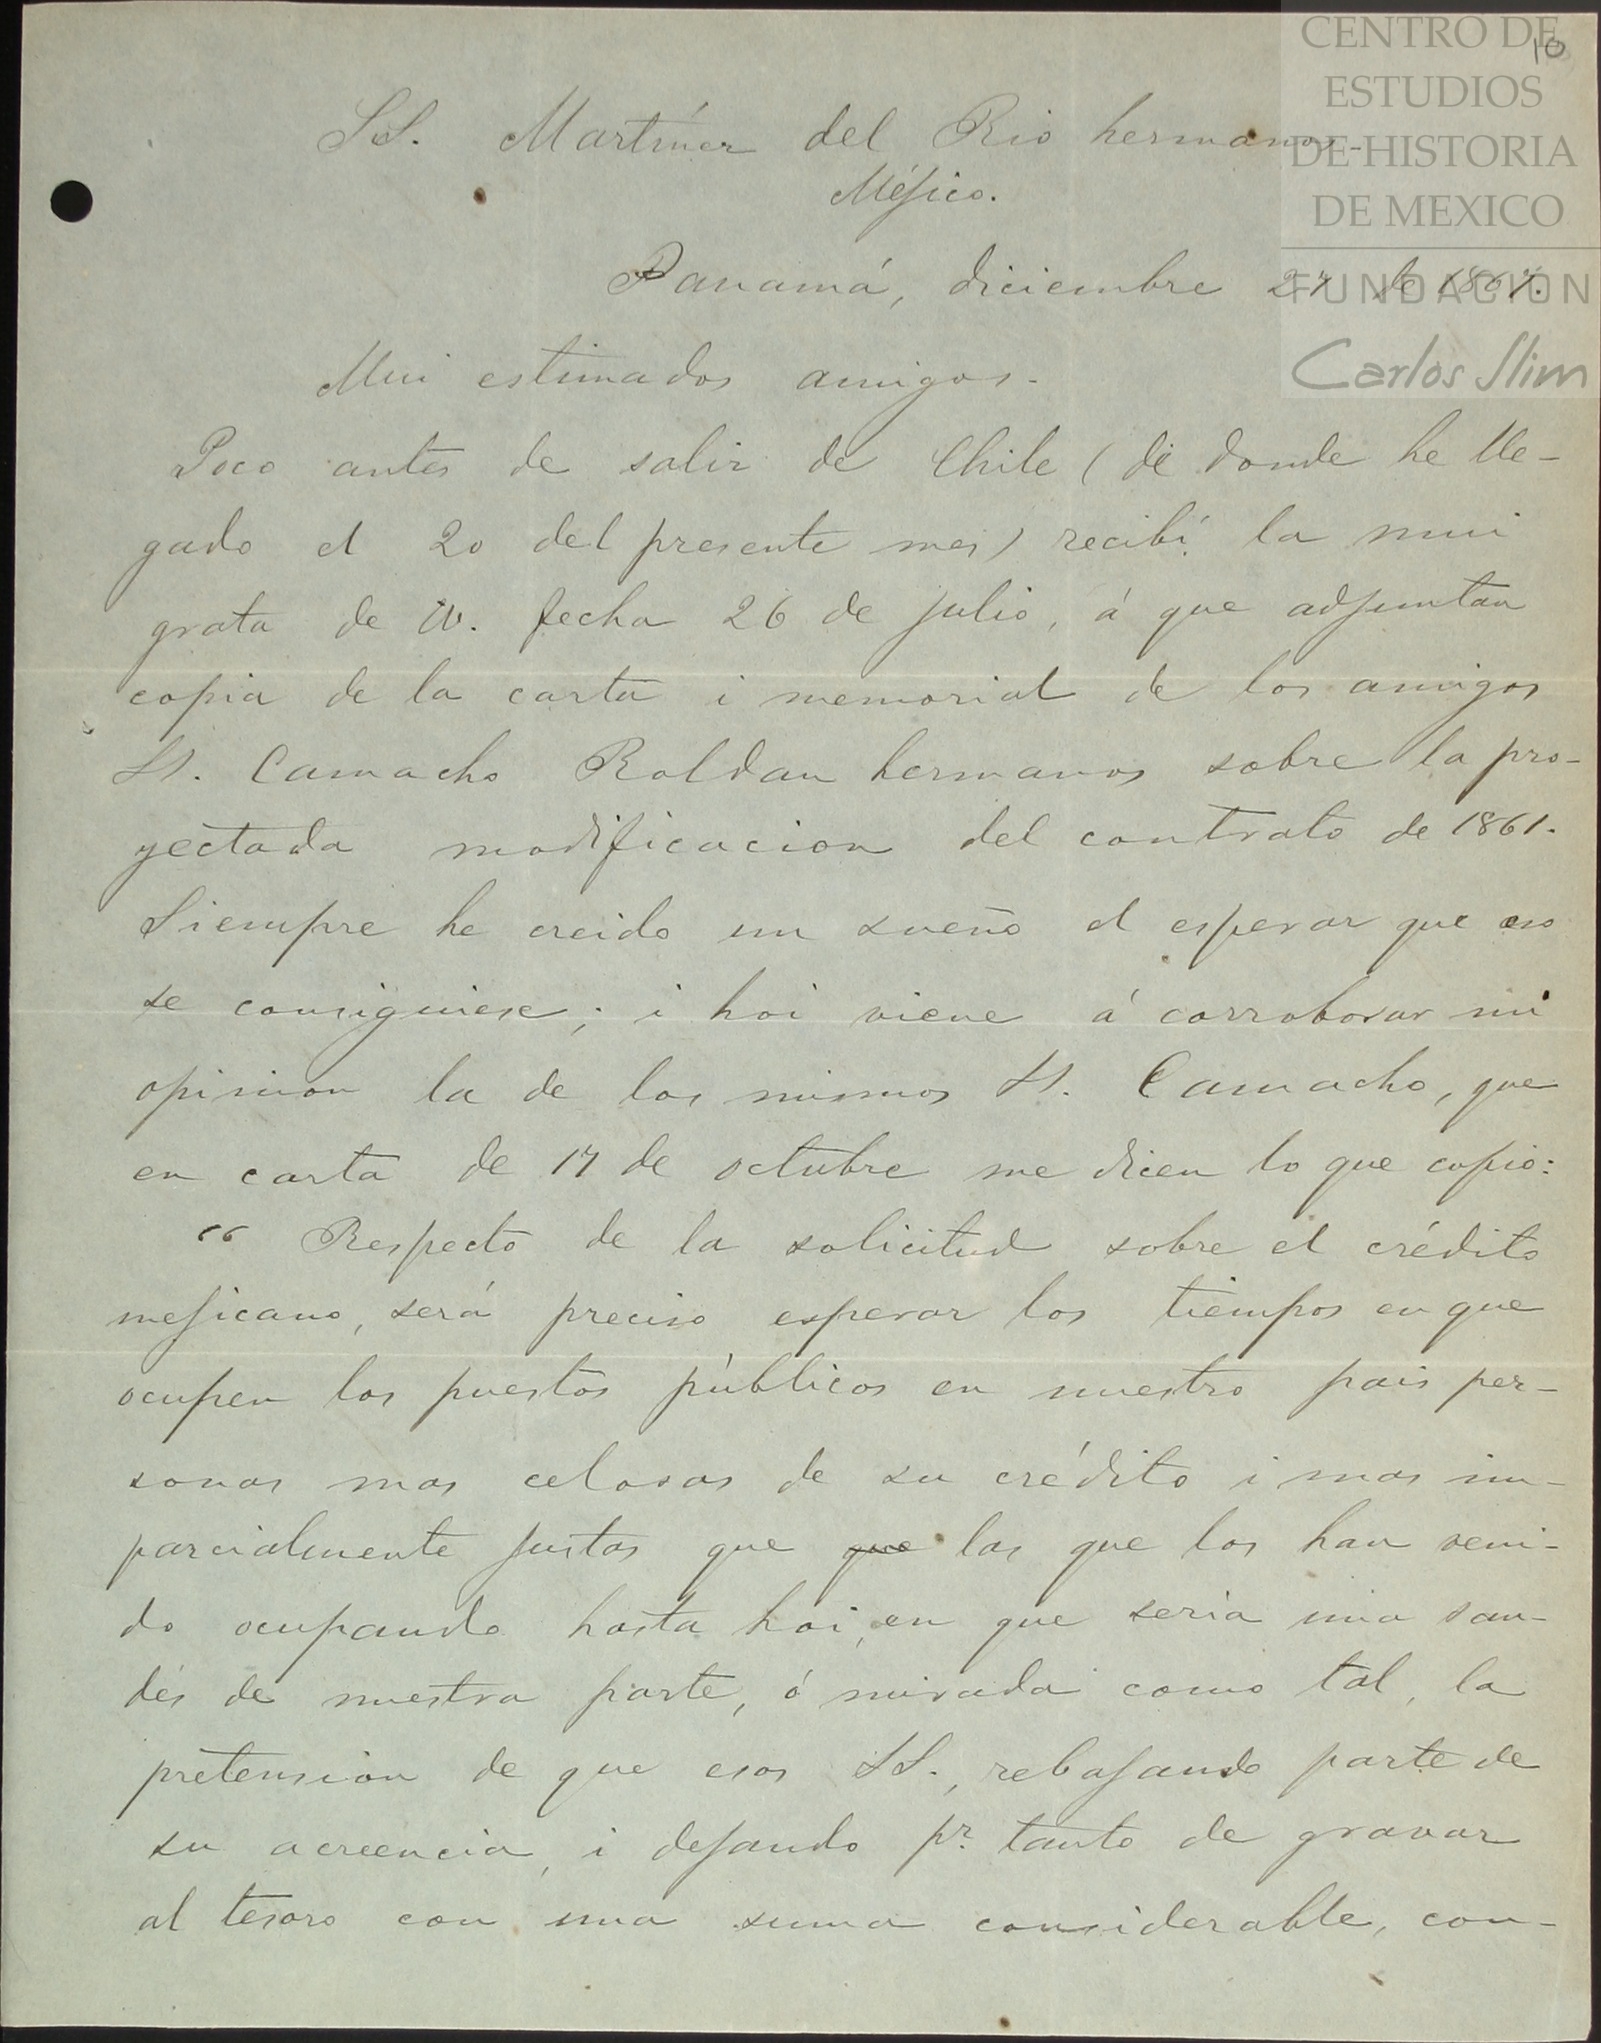 CENTRO DE
ESTUDIOS
DE HISTORIA
DE MEXICO
FUNDACION
Carlos Slim
10
SS. Martínez del Rio hermanos.
Méjico.
Panamá, diciembre 27 de 1867.
Mui estimados amigos.
Poco antes de salir de Chile (de donde he lle-
gado el 20 del presente mes) recibí la mui
grata de VV. fecha 26 de julio, á que adjuntan
copia de la carta i memorial de los amigos
SS. Camacho Roldan hermanos sobre la pro-
yectada modificacion del contrato de 1861.
Siempre he creido un sueño el esperar que eso
se consiguiese; i hoi viene á corroborar mi
opinion la de los mismos SS. Camacho, que
en carta de 17 de octubre me dicen lo que copio:
“ Respecto de la solicitud sobre el crédito
mejicano, será preciso esperar los tiempos en que
ocupen los puestos públicos en nuestro pais per-
sonas mas celosas de su crédito i mas im-
parcialmente justas que que las que los han veni-
do ocupando hasta hoi, en que seria una san-
dés de nuestra parte, ó mirada como tal, la
pretension de que esos SS., rebajando parte de
su acreencia, i dejando pr. tanto de gravar
al tesoro con una suma considerable, con-